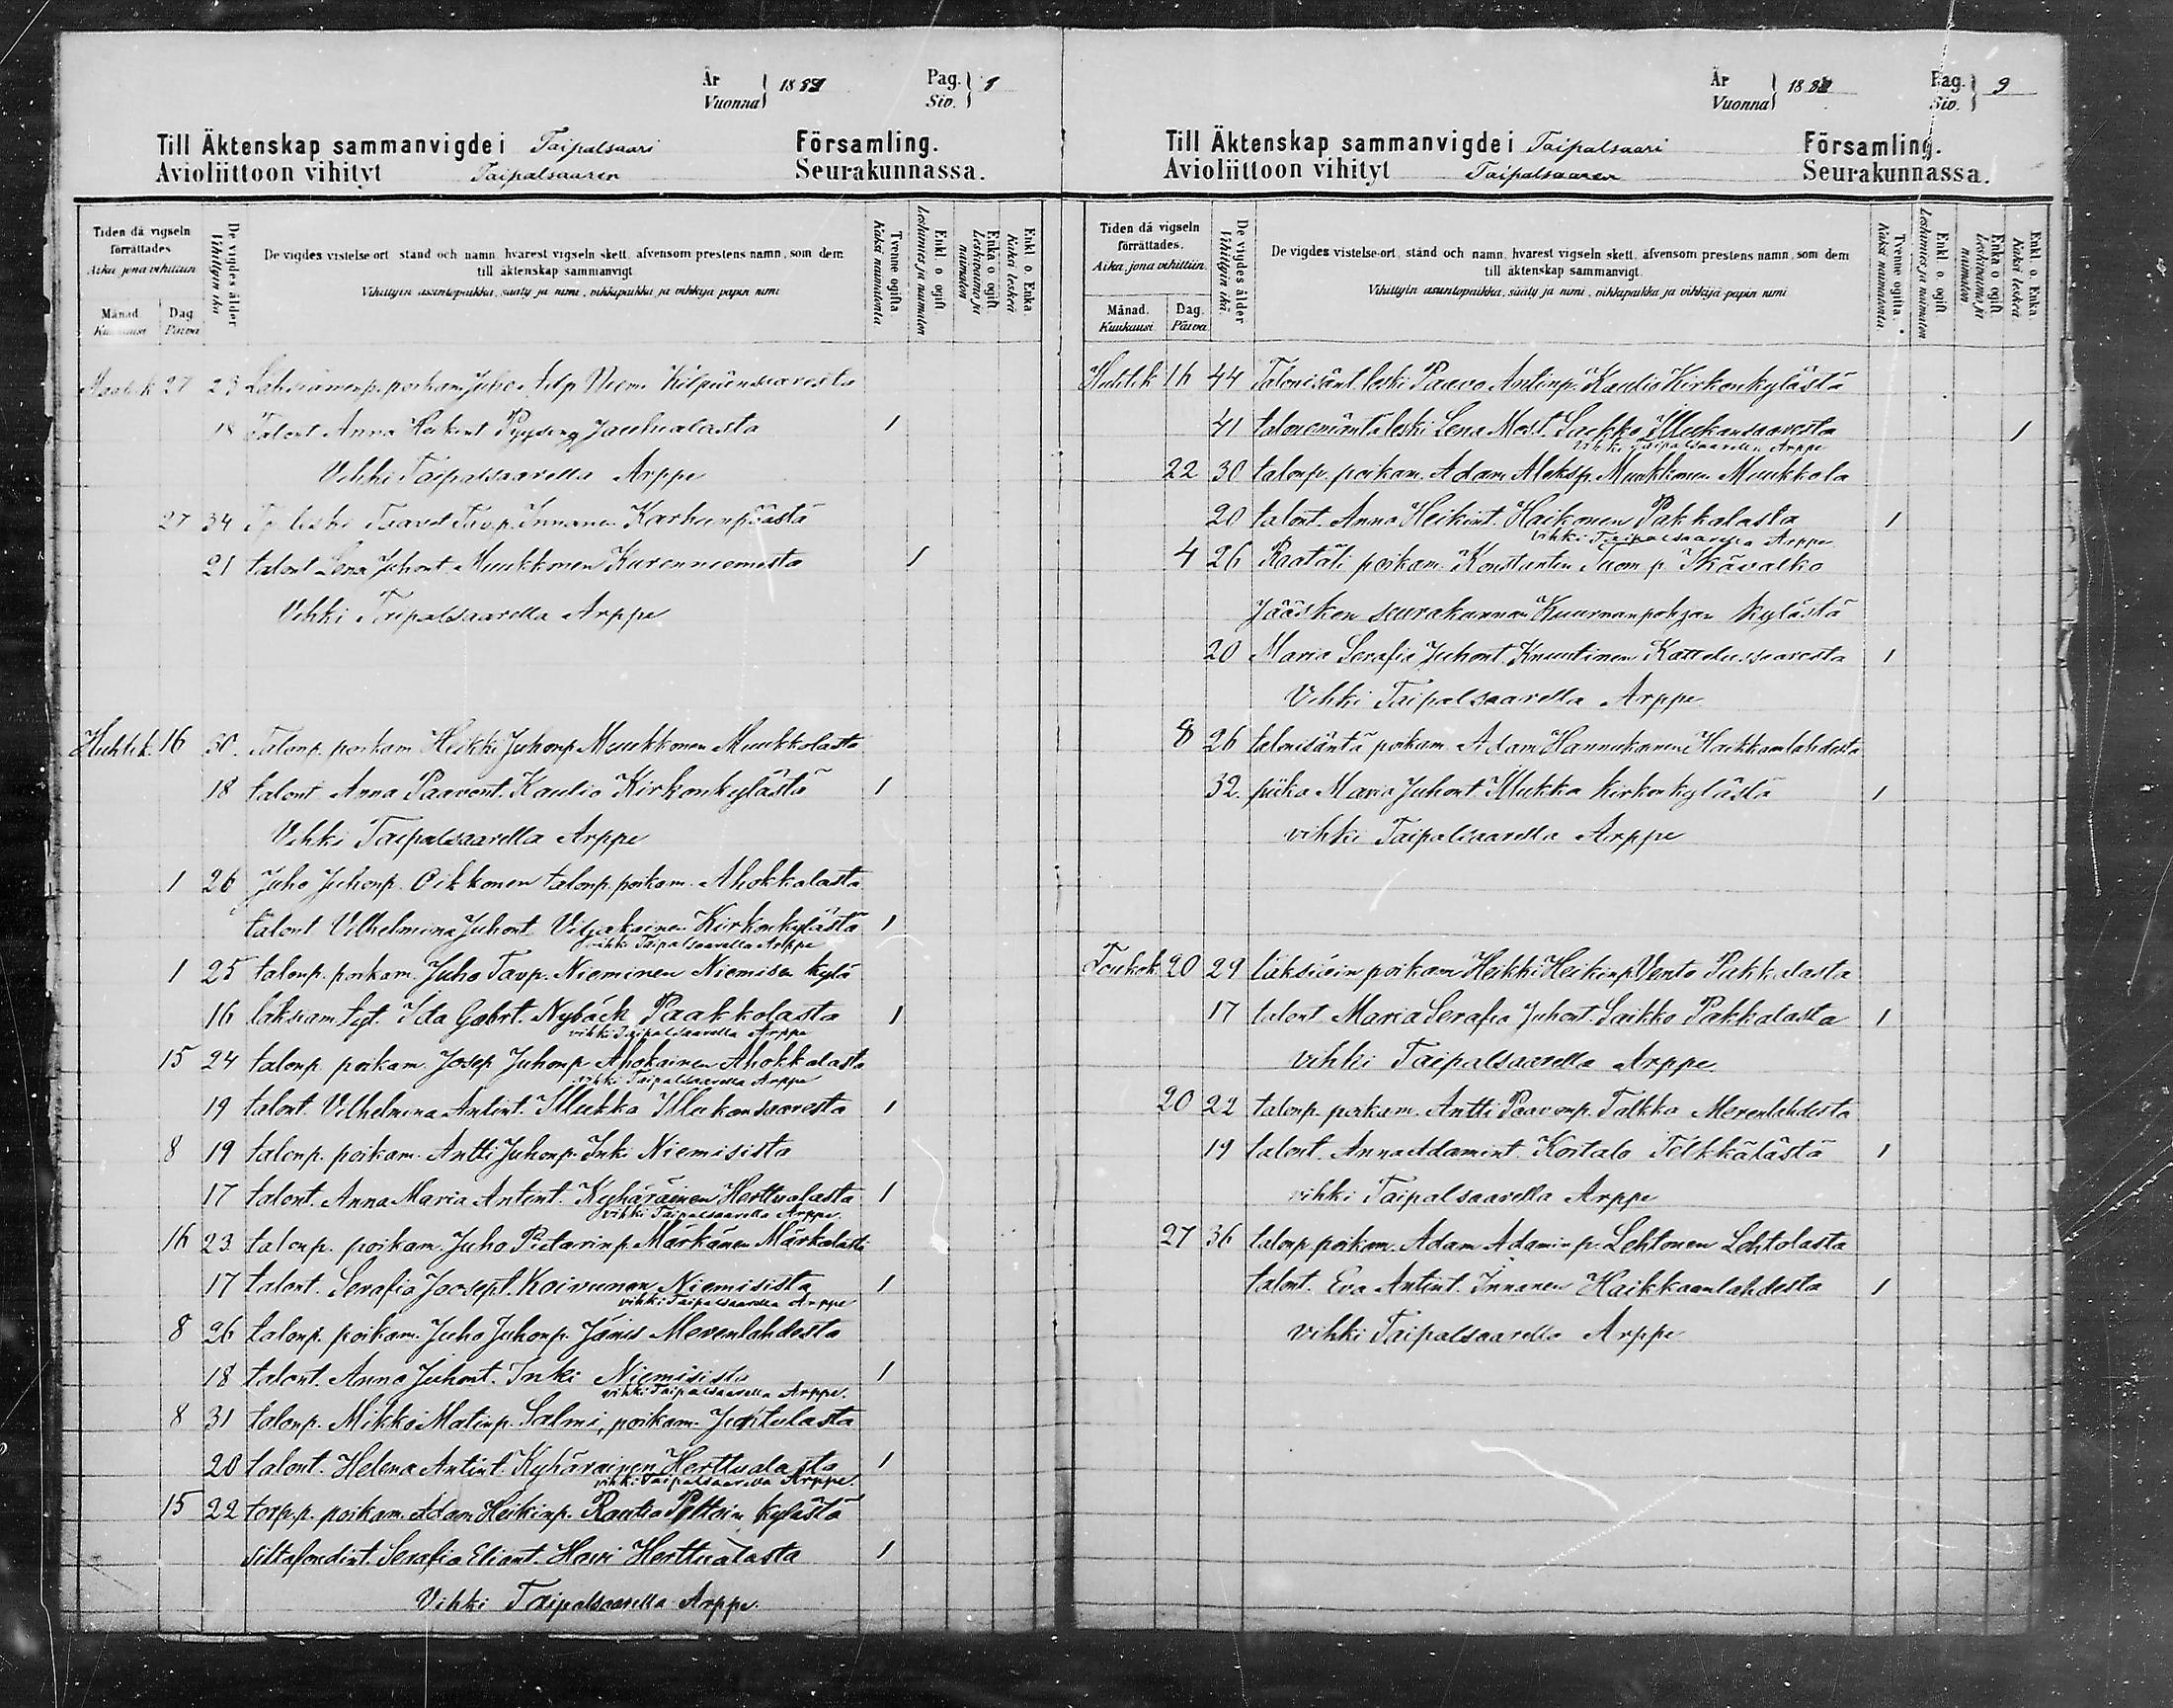 År
Vuonna
18
Pag.
Siv.
Till Äktenskap sammanvigde i Taipalsaari Församling.
Avioliittoon vihityt Taipalsaaren Seurakunnassa.
Tiden då vigseln förrättades.
Aika, jona vihittiin
Månad. Kuukausi
Dag Päivä
De vigdes ålder
Vihittyin ikä
De vigdes vistelse-ort, stånd och namn, hvarest vigseln skett, äfvensom prestens namn, som dem
till äktenskap sammanvigt
Vihittyin asuntopaikka, sääty ja nimi, vihkipaikka ja vihkijä papin nimi
Tvenne ogifta
Kaksi naimatonta
Enkl. o ogift
Leskimies ja naimaton
Enka o ogift
Leskivaimo ja naimaton
Enkl o. Enka
Kaksi leskeä
27 23 poikam Juho
18 Talont Anna Heikint Pyysing Jauhialasta 1
Vihki Taipalsaarella Arppe
27 34 leski Taavet Tav.p. Innanen Karhunpäästä
21 talont Lena Juhont Muukkonen Kurenniemestä 1
Vihki Taipalsaarella Arppe
Huhtik. 16 30. Talonp. poikam Heikki Juhonp Muukkonen Muukkolasta
18 talont Anna Paavont. Kaulio Kirkonkylästä 1
Vihki Taipalsaarella Arppe
1 26 Juho Juhonp. Oikkonen talonp. poikam. Ahokkalasta
talont Vilhelmina Juhont Viljakainen Kirkonkylästä 1
vihki Taipalsaarella Arppe
1 25 talonp. poikam. Juho Tavp. Nieminen Niemisen kylä
16 Ida Gabrt. Nybäck Paakkolasta 1
vihki Taipalsaarella Arppe
15 24 talonp. poikam. Josep Juhonp Ahokainen Ahokkalasta
vihki Taipalsaarella Arppe
19 talont. Vilhelmina Antint. Illukka Illukansaaresta 1
8 19 talonp. poikam. Antti Juhonp. Inki Niemisistä
17 talont. Anna Maria Antint. Kyhäräinen Herttualasta 1
vihki Taipalsaarella Arppe.
16 23 talonp. poikam. Juho Pietarinp. Märkänen Märkälästä
17 talont. Serafia Joosept. Koivunen Niemisistä 1
vihki Taipalsaarella Arppe
8 26 talonp. poikam. Juho Juhonp. Jänis Merenlahdesta
18 talont. Anna Juhont. Inki Niemisistä 1
vihki Taipalsaarella Arppe.
8 31 talonp. Mikko Matinp. Salmi, poikam.
20 talont. Helena Antint. Kyhäräinen Herttualasta 1
vihki Taipalsaarella Arppe.
15 22 torp.p. poikam. Adam Heikinp. Rautia kylästä
Serafia Eliant. Herttualasta 1
Vihki Taipalsaarella Arppe.
År
Vuonna
18
Pag.
Siv.
9
Till Äktenskap sammanvigde i Taipalsaari Församling.
Avioliittoon vihityt Taipalsaaren Seurakunnassa.
Tiden då vigseln förrättades.
Aika, jona vihittiin.
Månad. Kuukausi
Dag. Päivä
De vigdes ålder
Vihittyin ikä
De vigdes vistelse-ort, stånd och namn, hvarest vigseln skett, äfvensom prestens namn, som dem
till äktenskap sammanvigt.
Vihittyin asuntopaikka, sääty ja nimi, vihkipaikka ja vihkijä papin nimi
Tvenne ogifta.
Kaksi naimatonta.
Enkl. o. ogift
Leskimies ja naimaton
Enka o ogift.
Leskivaimo ja naimaton
Enkl. o. Enka.
Kaksi leskeä.
Huhtik 16 44 Talonisänt. leski Paavo Antinp. Kaulio Kirkonkylästä
41 talonemäntä leski Lena Mart. Saikko Illukansaaresta 1
vihki Taipalsaarella Arppe
22 30 talonp. poikam. Adam Aleksp. Muukkonen Muukkola
20 talont. Anna Heikint. Haikonen Pakkalasta 1
vihki Taipalsaarella Arppe.
4 26 Räätäli poikam. Konstantin Tuom.p. Ikävalko
Jääsken seurakunnan Kuurmanpohjan kylästä
20 Maria Serafia Juhont. Knuutinen Kattelussaaresta 1
Vihki Taipalsaarella Arppe
8 26 talonisäntä poikam. Adam Hannukainen Haikkaanlahdesta
32. piika Maria Juhont. Illukka kirkonkylästä 1
vihki Taipalsaarella Arppe
Toukok 20 29 poikam Heikki Heikinp. Vento Pakkalasta
17 talont Maria Serafia Juhont. Saikko Pakkalasta 1
vihki Taipalsaarella Arppe.
20 22 talonp. poikam. Antti Paavonp. Talkka Merenlahdesta
19 talont. Anna Adamint. Kostalo Telkkälästä 1
vihki Taipalsaarella Arppe
27 36 talonp. poikam. Adam Adamin p. Lehtonen Lehtolasta
talont. Eva Antint. Innanen Haikkaanlahdesta 1
vihki Taipalsaarella Arppe